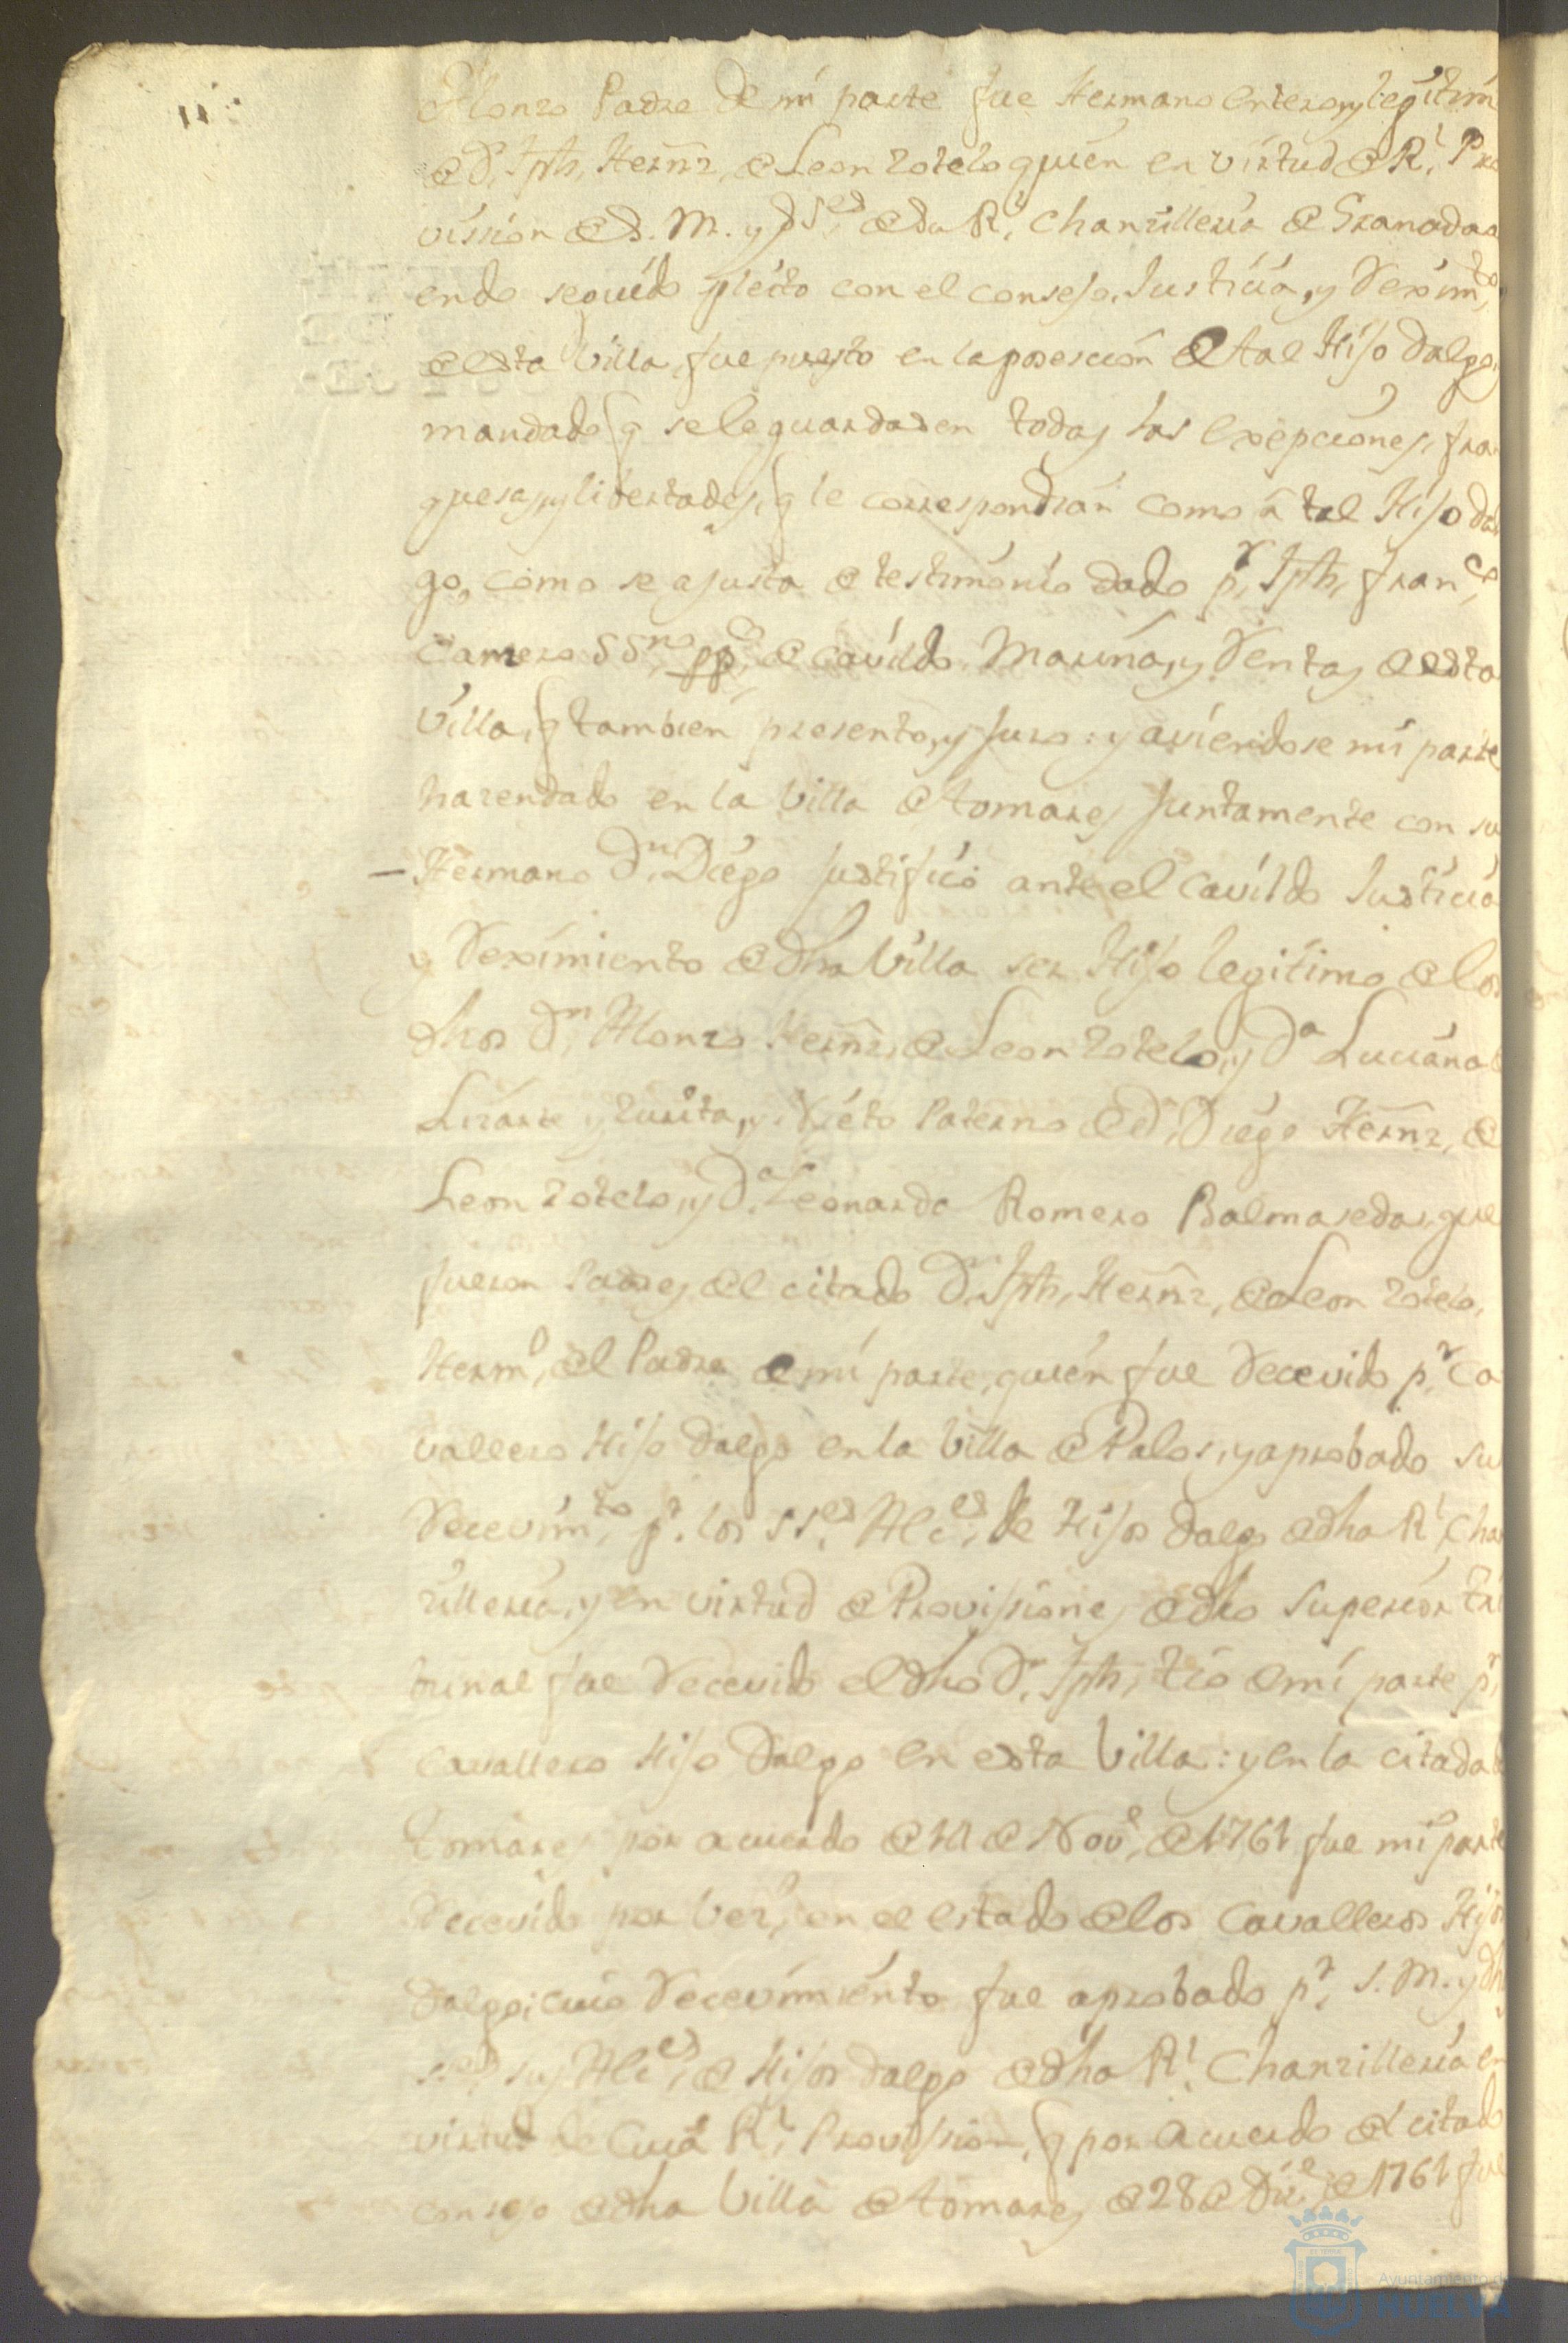 Alonzo Padre de mi parte fue Hermano entero, y legitim
de Dn. Jph. Hernz. de Leon zotelo quien en virtud de Rl. Pro
vission de S. M. y SSes. de su Rl. Chanzilleria de Granada a
endo seguido pleito con el consejo, Justicia, y Reximto.
de esta Villa, fue puesto en la posescion de tal Hijo dalgo, y
mandado q se le guardasen todas las exepciones, fran
quesas, y libertades, q le correspondian como â tal Hijo dal
go, como se ajusta de testimonio dado pr. Jph. Franco.
Camero SSno. ppco. de cavildo, Marina, y Rentas de esta
Villa, q tambien presento, y juro: y aviendose mi parte
hazendado en la Villa de tomares juntamente con su
- Hermano Dn. Diego justificó ante el cavildo Justicia
y Reximiento de dha Villa ser Hijo legitimo de los
dhos Dn. Alonzo Hernz. de Leon zotelo, y Da. Luciana
Lizarte y zurita, y Nieto Paterno de Dn. Diego Hernz. de
Leon zotelo, y Da. Leonarda Romero Balmaseda, que
fueron Padres del citado Dn. Jph. Hernz. de Leon zotelo,
Hermo. del Padre de mi parte, quien fue Recevido pr. Ca
vallero Hijo dalgo en la Villa de Palos, y aprobado su
Recevimto. pr. los SSes. Alces. de Hijos dalgo de dha Rl. Chan
zilleria, y en virtud de Provissiones de dho Superior tri
bunal fue Recevido el dho Dn. Jph. tio de mi parte pr.
Cavallero Hijo dalgo en esta Villa: y en la citada de
tomares por acuerdo de 11 de Nove. de 1761 fue mi parte
Recevido por Vezo. en el estado de los Cavalleros Hijos
dalgo; cuio Recevimiento fue aprobado pr. S. M. y dhos
SSes. sus Alces. de Hijos dalgo de dha Rl. Chanzilleria en
virtud de Cuia Rl. Provission, q por acuerdo del citado
consejo de dha Villa de tomares de 28 de Dice. de 1761 fue
Ayuntamiento de
HUELVA